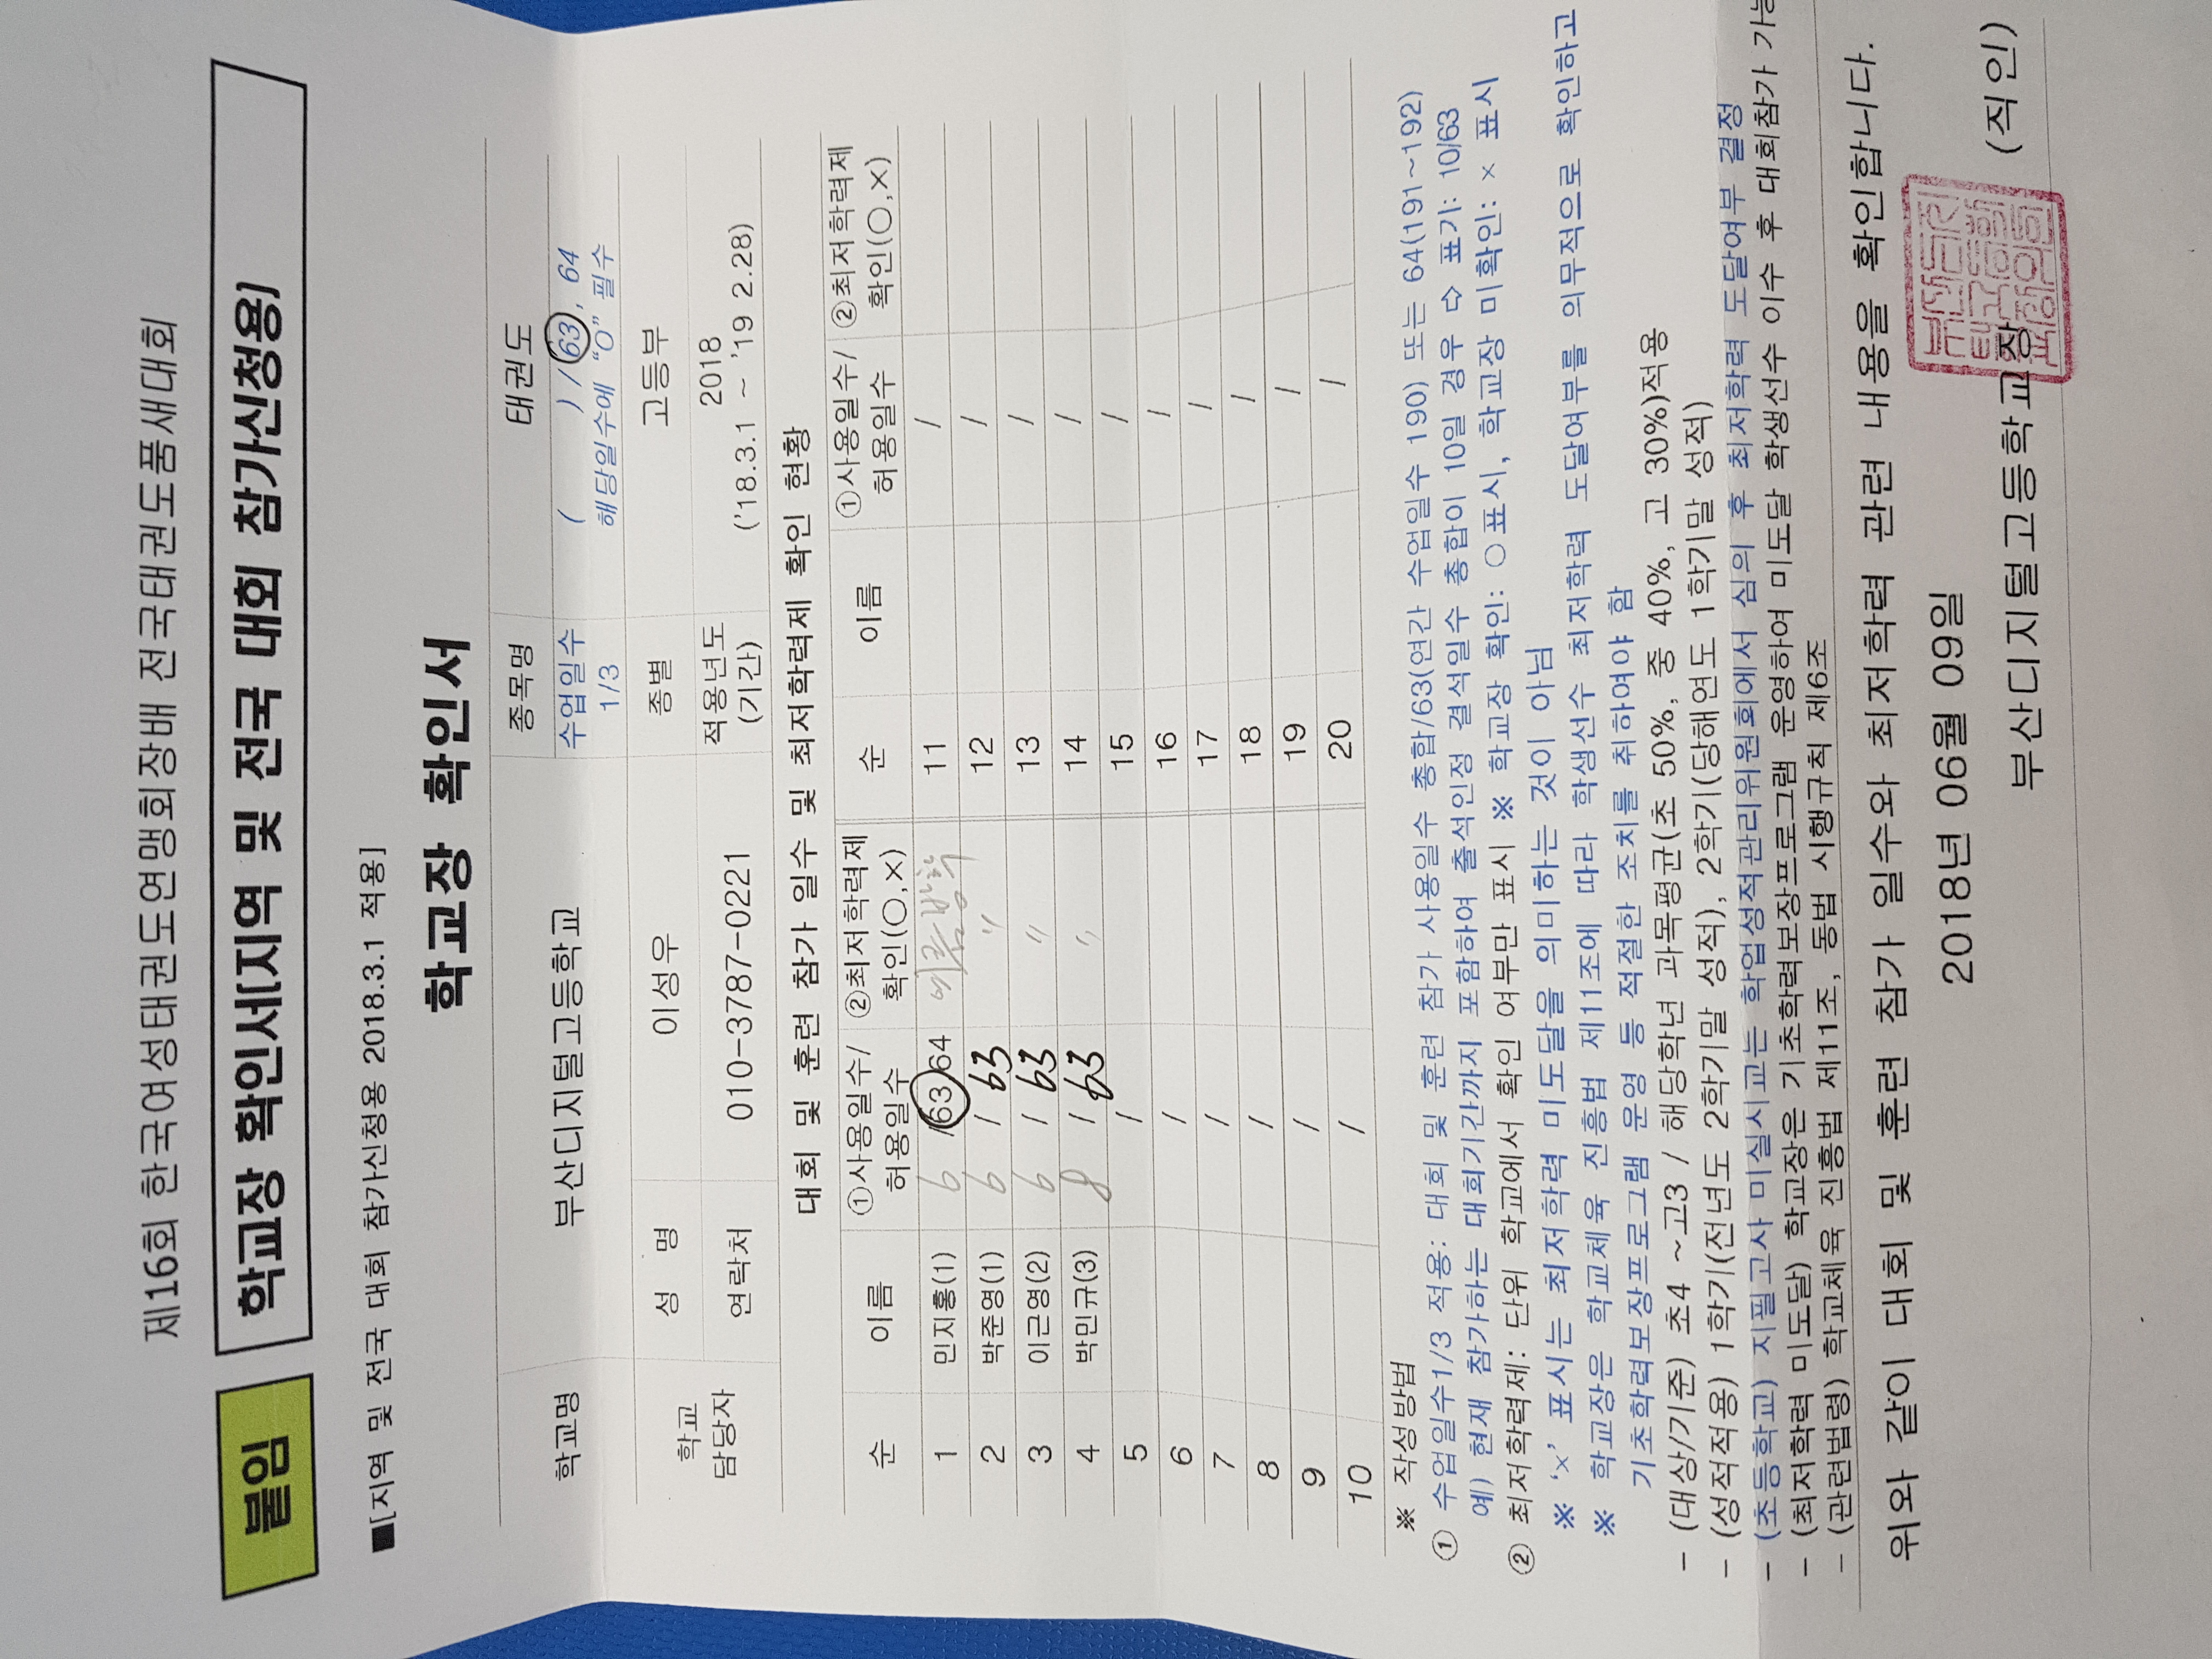 제16회 한국여성태권도연맹회장배 전국태권도품새대회
붙임 학교장 확인서[지역 및 전국 대회 참가신청용]
■[지역 및 전국 대회 참가신청용 2018.3.1 적용]
학교장 확인서
학교명 부산디지털고등학교 종목명 태권도
수업일수 1/3 ( ) / 63, 64
해당일수에 "O" 필수
학교 담당자 성 명 이성우 종별 고등부
연락처 010-3787-0221 적용년도 (기간) 2018
('18.3.1 ~ '19 2.28)
대회 및 훈련 참가 일수 및 최저학력제 확인 현황
순 이름 ①사용일수/ 허용일수 ②최저학력제 확인(○,×) 순 이름 ①사용일수/ 허용일수 ②최저학력제 확인(○,×)
1 민지홍(1) 6 /63 64 11 /
2 박준영(1) 6 / 63 〃 12 /
3 이근영(2) 6 / 63 〃 13 /
4 박민규(3) 8 / 63 〃 14 /
5 / 15 /
6 / 16 /
7 / 17 /
8 / 18 /
9 / 19 /
10 / 20 /
※ 작성방법
① 수업일수1/3 적용: 대회 및 훈련 참가 사용일수 총합/63(연간 수업일수 190) 또는 64(191~192)
예) 현재 참가하는 대회기간까지 포함하여 출석인정 결석일수 총합이 10일 경우 ⇨ 표기: 10/63
② 최저학력제: 단위 학교에서 확인 여부만 표시 ※ 학교장 확인: ○표시, 학교장 미확인: × 표시
※ '×' 표시는 최저학력 미도달을 의미하는 것이 아님
※ 학교장은 학교체육 진흥법 제11조에 따라 학생선수 최저학력 도달여부를 의무적으로 확인하고
기초학력보장프로그램 운영 등 적절한 조치를 취하여야 함
- (대상/기준) 초4 ~고3 / 해당학년 과목평균(초 50%, 중 40%, 고 30%)적용
- (성적적용) 1학기(전년도 2학기말 성적), 2학기(당해연도 1학기말 성적)
- (초등학교) 지필고사 미실시교는 학업성적관리위원회에서 심의 후 최저학력 도달여부 결정
- (최저학력 미도달) 학교장은 기초학력보장프로그램 운영하여 미도달 학생선수 이수 후 대회참가 가능
- (관련법령) 학교체육 진흥법 제11조, 동법 시행규칙 제6조
위와 같이 대회 및 훈련 참가 일수와 최저학력 관련 내용을 확인합니다.
2018년 06월 09일
부산디지털고등학교장 (직인)